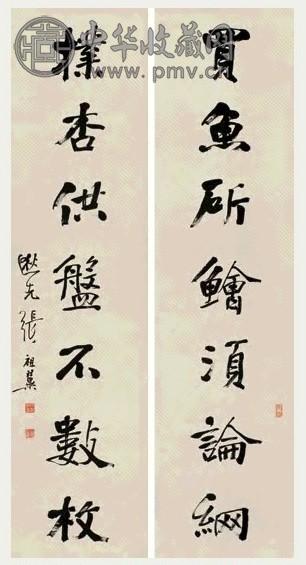 中华收藏网
www.pmv.cn
買魚斫鱠須論網
撲杏供盤不數枚
逖先張祖翼